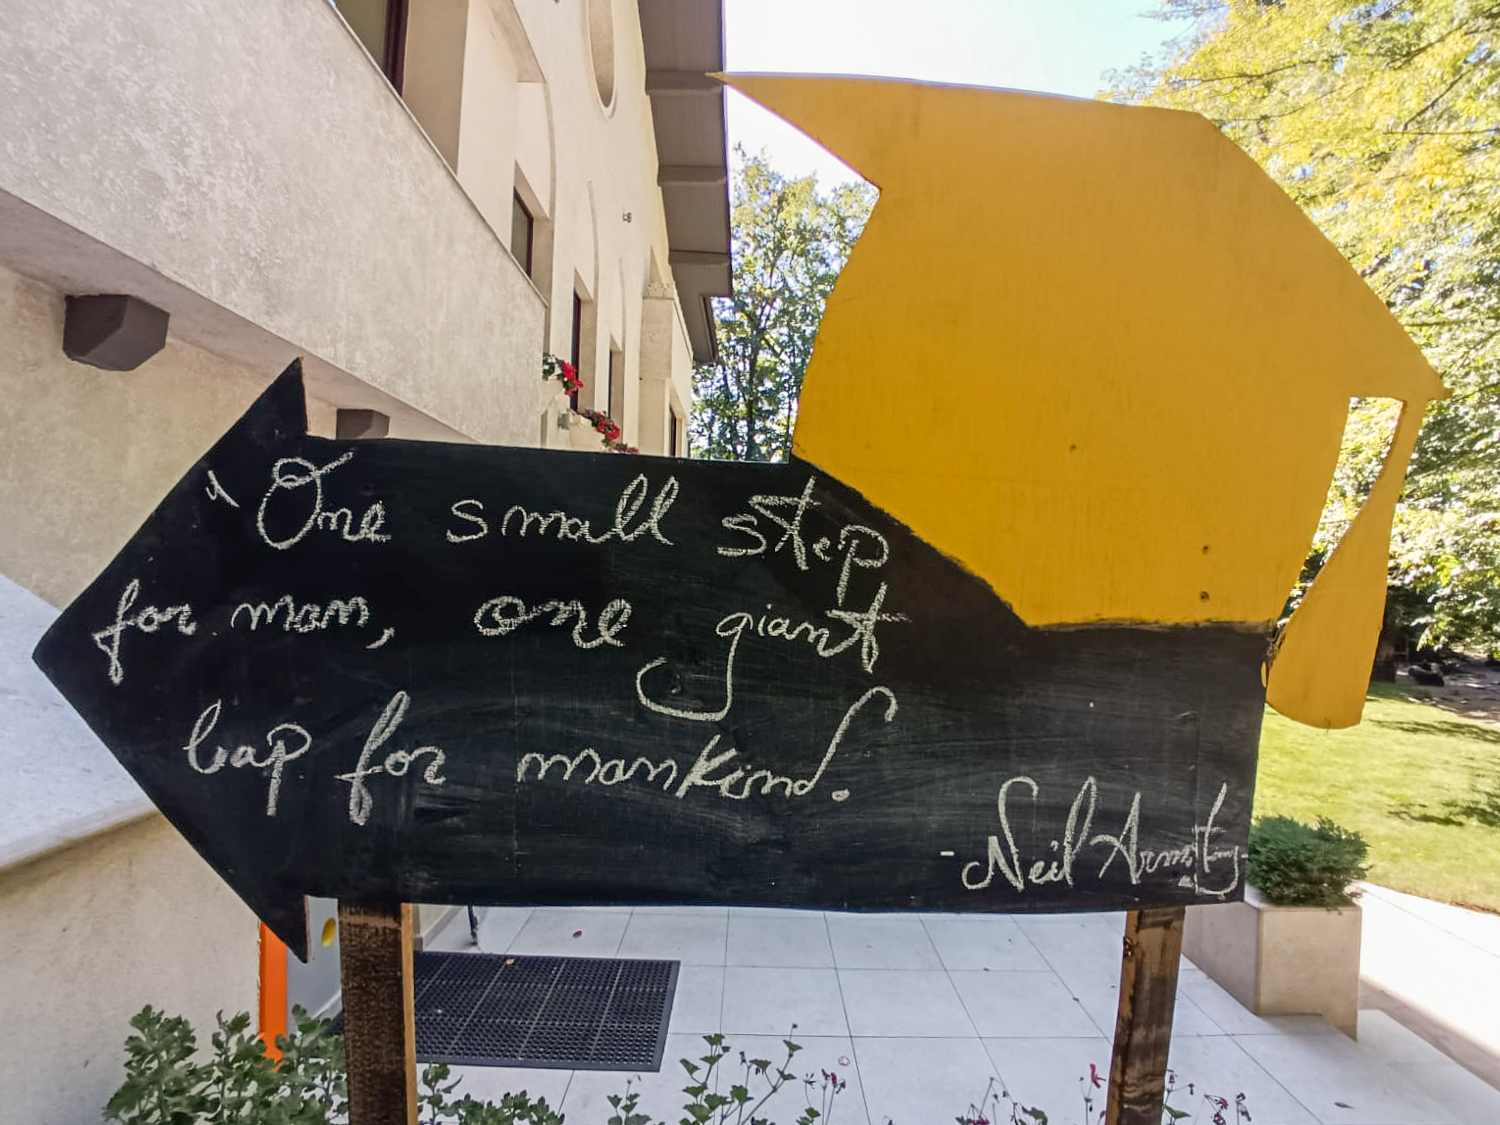 "One small step
for man, one giant
leap for mankind.
- Neil Armstrong